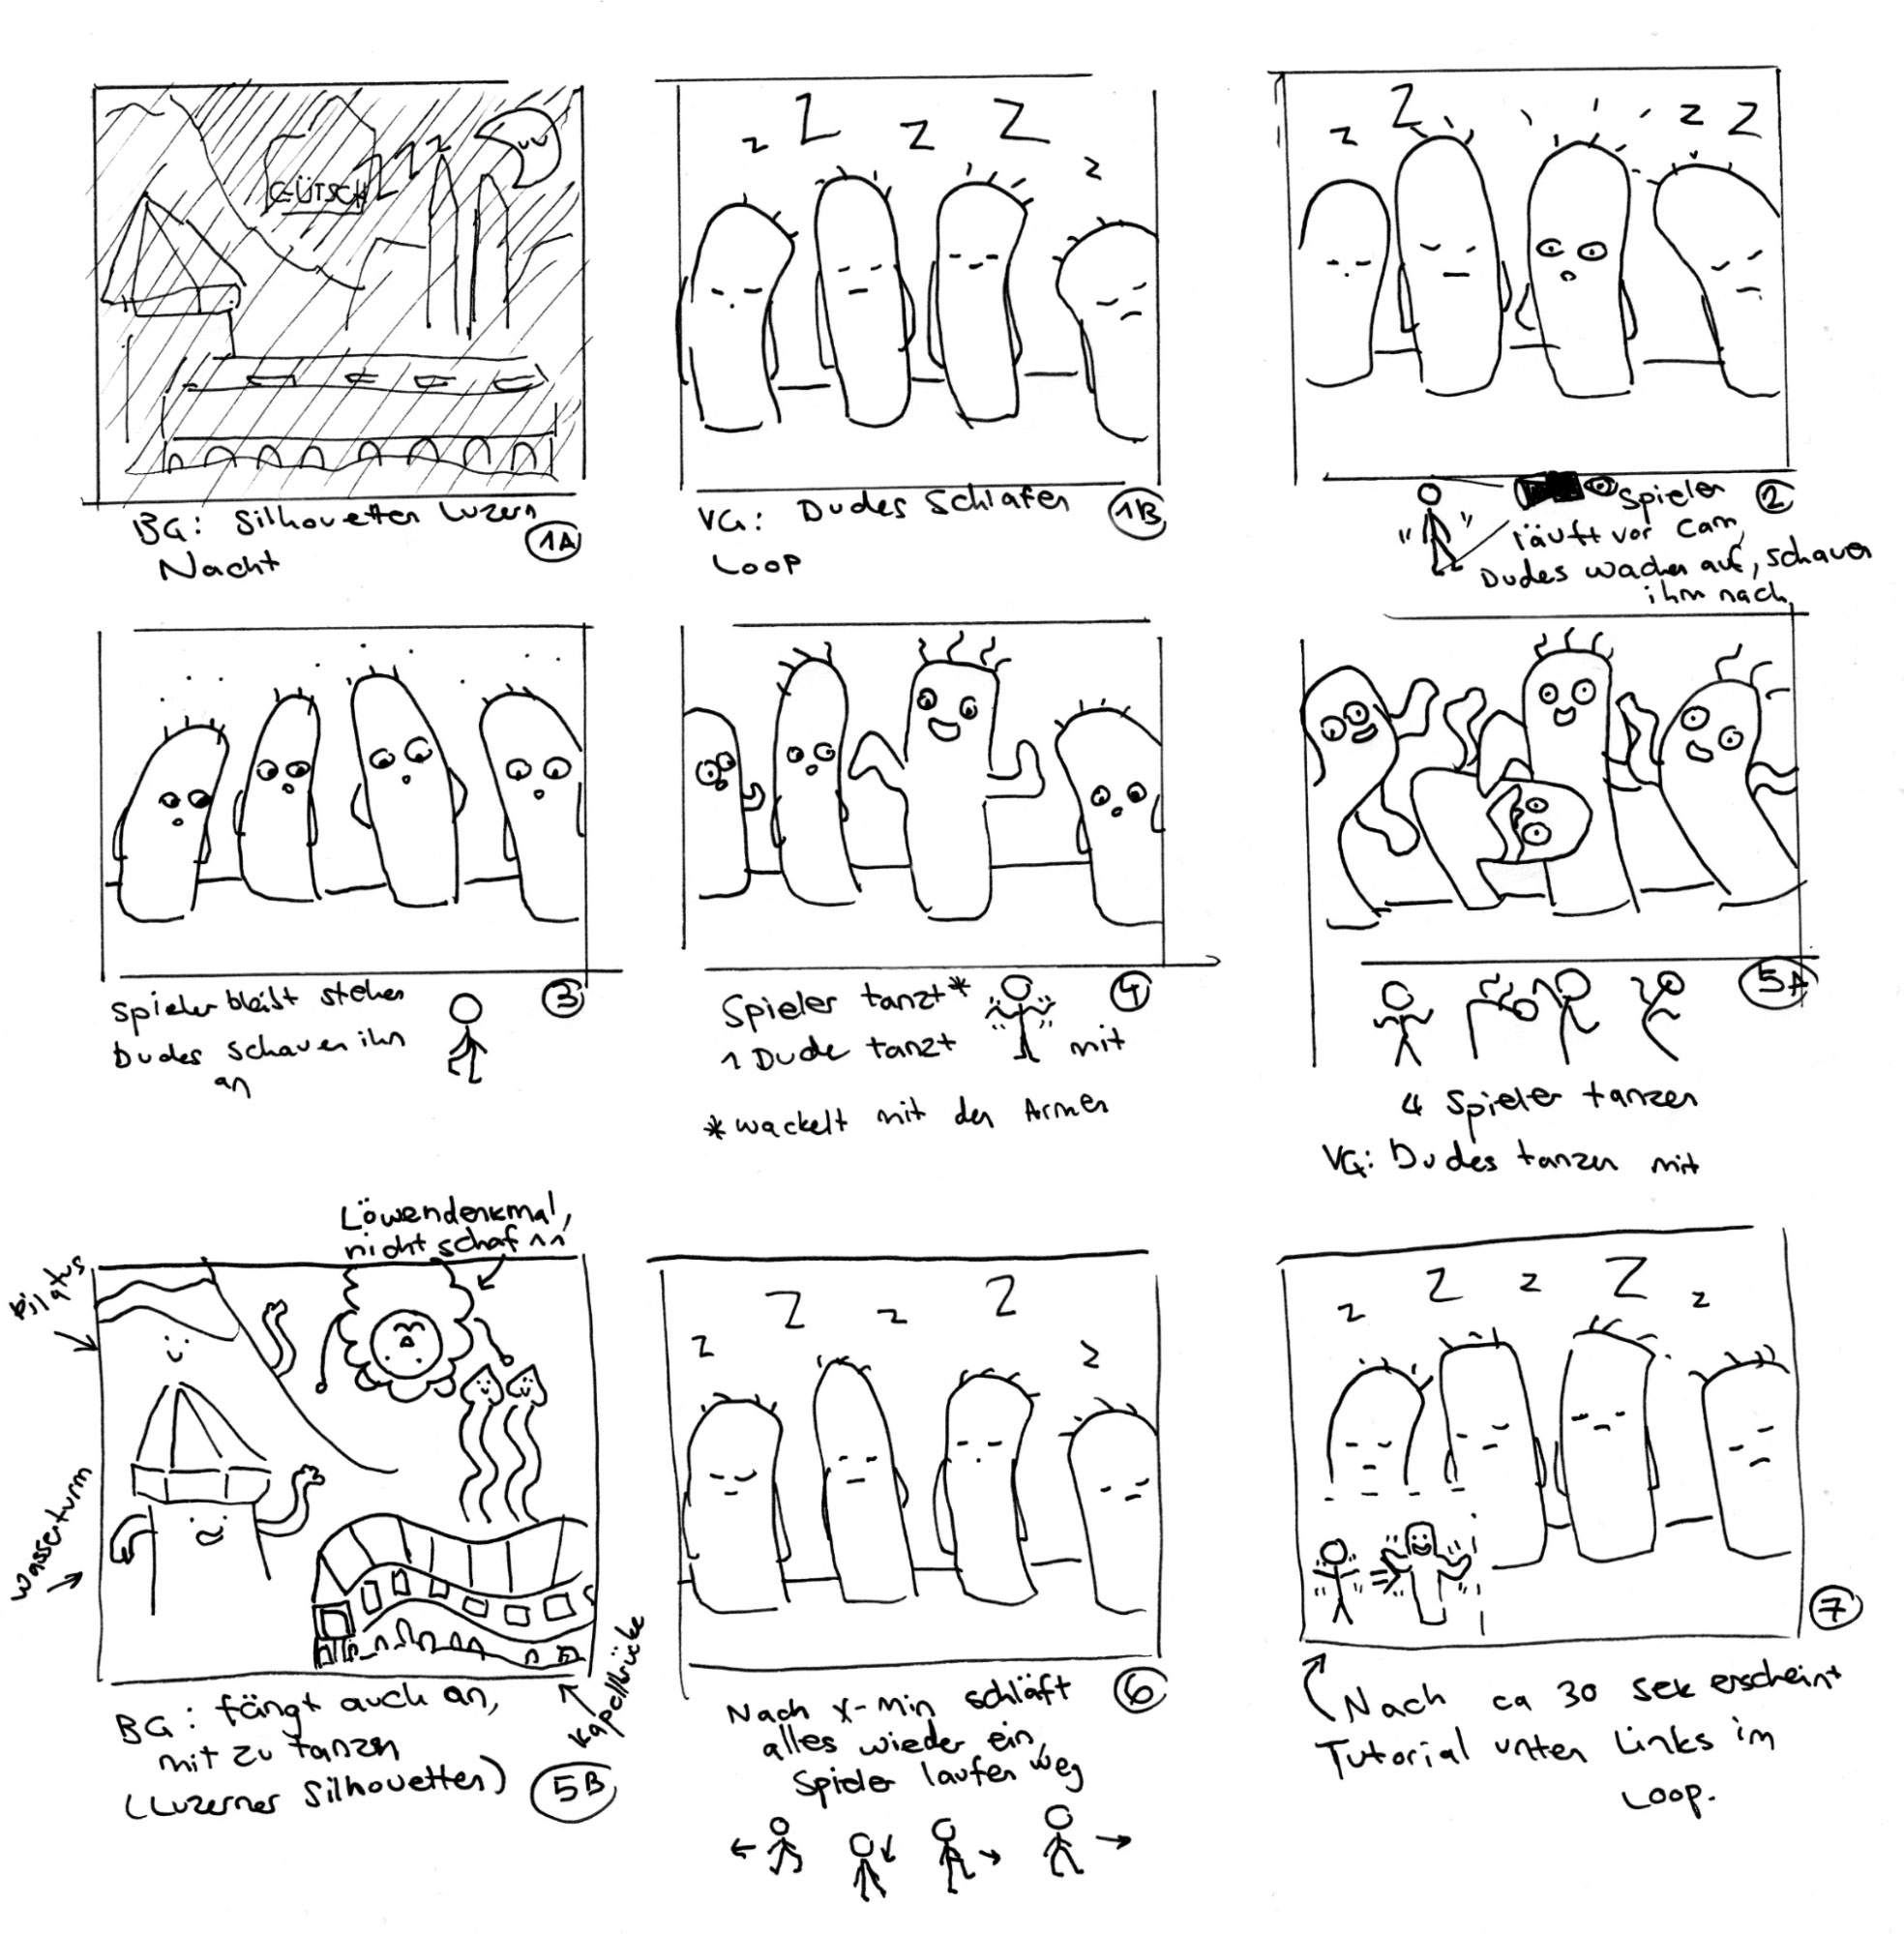 GÜTSCH
z z z
BG: Silhouetten Luzern
Nacht
1A
z Z z Z z
VG: Dudes Schlafen
Loop
1B
z Z z Z
Spieler
2
läuft vor Cam,
Dudes wachen auf, schauen
ihm nach
Spieler bleibt stehen
Dudes schauen ihn
an
3
Spieler tanzt*
1 Dude tanzt mit
*wackelt mit den Armen
4
5A
4 Spieler tanzen
VG: Dudes tanzen mit
Löwendenkmal,
nicht schaf ^^
Pilatus
Wasserturm
Kapellbrücke
BG: fängt auch an,
mit zu tanzen
(Luzerner Silhouetten)
5B
z Z z Z z
Nach x-min schläft
alles wieder ein,
Spieler laufen weg
6
z Z z Z z
7
Nach ca 30 sek erscheint
Tutorial unten Links im
Loop.